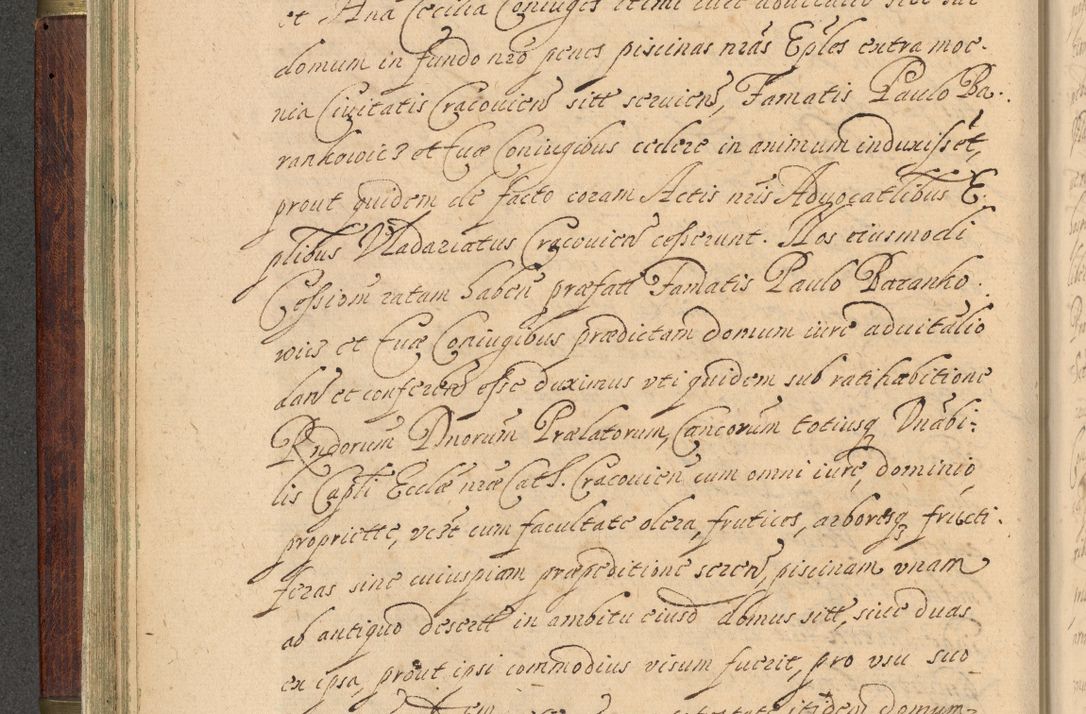 et Ana Cecilia Coniuges
domum in fundo nrō penes piscinas nrās Eples extra moe-
nia Civitatis Cracovień sitt servień, Famatis Paulo Ba-
rankowicz et Evæ Coniugibus cedere in animum induxisset,
prout quidem de facto coram Actis nrīs Advocatlibus E-
plibus Vladariatus Cracovień cesserunt. Nos eiusmodi
Cessiom ratam habeń præfatt Famatis Paulo Baranko-
wicz et Evæ Coniugibus prædictam domum iure advitalio
dań et confereń esse duximus vti quidem sub ratihabitione
Rndorum Dnorum Prælatorum, Cancorum totiusq Vnābi-
lis Capli Ecclæ nræ Cath. Cracovień cum omni iure, dominio,
propriette, vest cum facultate olera, frutices, arboresq fructi-
feras sine cuiuspiam præpeditione sereń, piscinam vnam
ab antiquo desertt in ambitu eiusd domus sitt, sive duas
ex ipsa, prout ipsi commodius visum fuerit, pro vsu suo
domum-